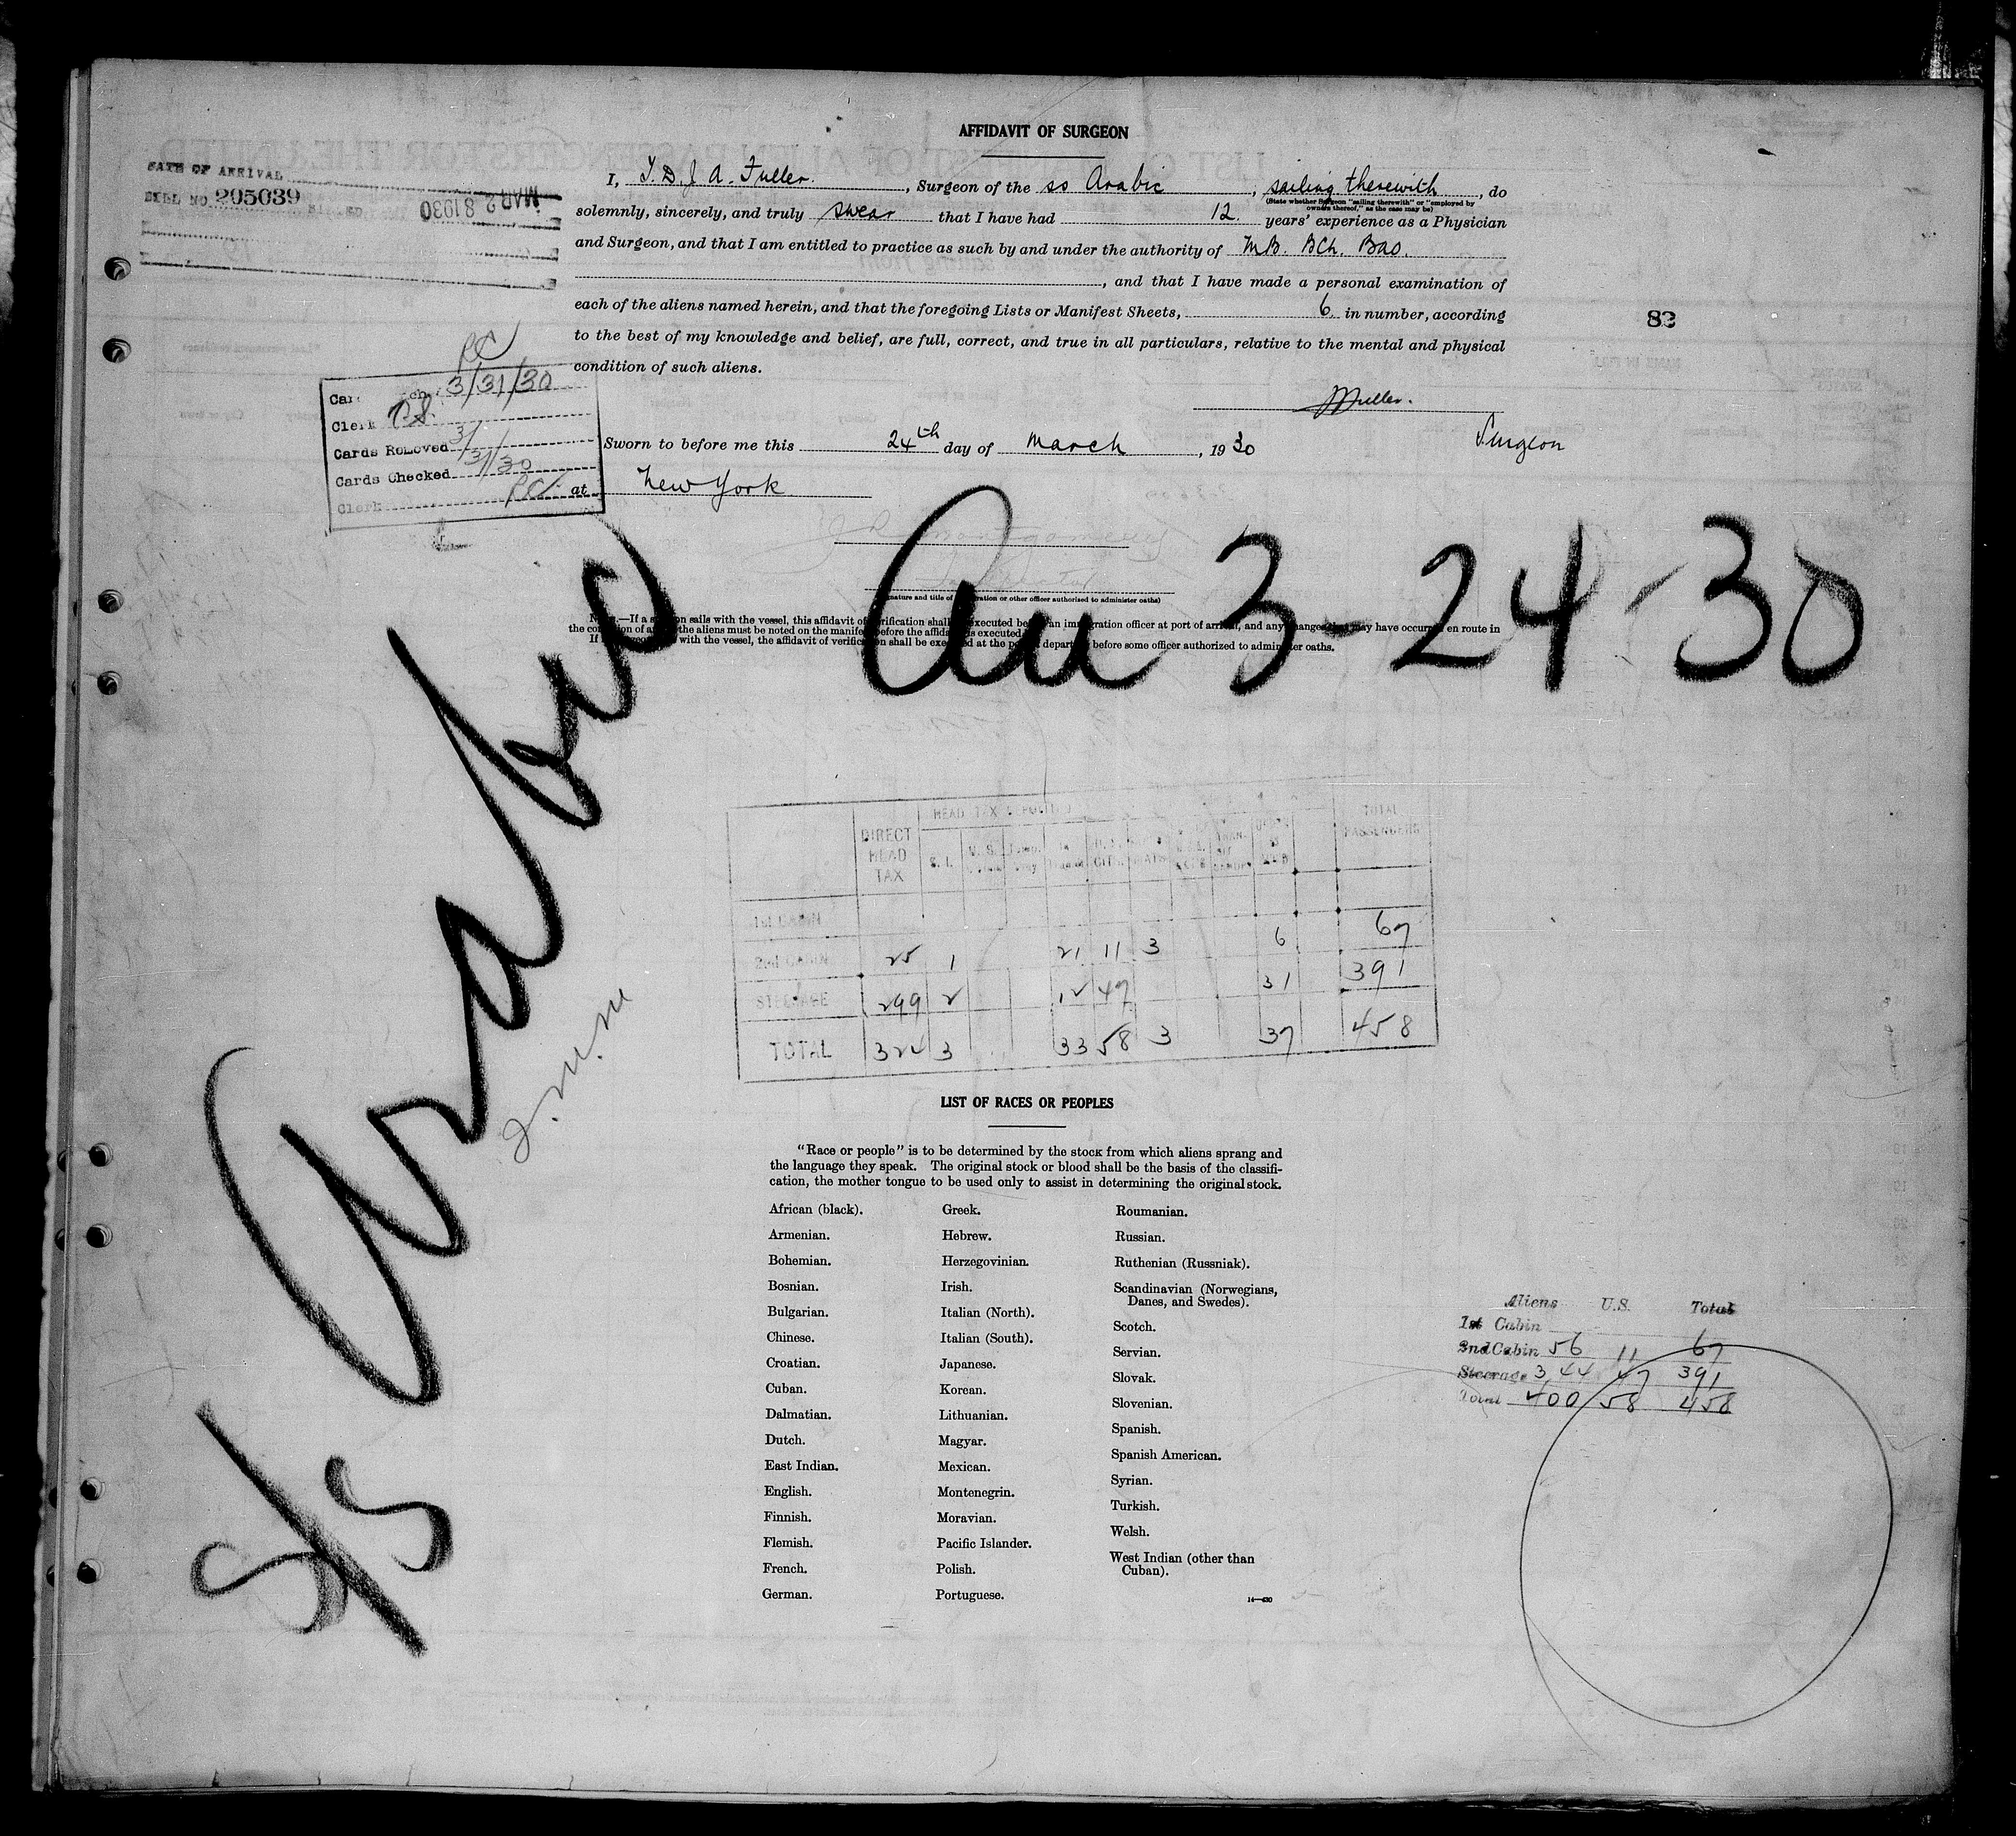 AFFIDAVIT OF SURGEON
DATE OF ARRIVAL
BILL NO. 205039
MAR 28 1930
I, T. D. J. A. Fuller, Surgeon of the ss Arabic, sailing therewith, do
(State whether Surgeon "sailing therewith" or "employed by
owners thereof," as the case may be)
solemnly, sincerely, and truly swear that I have had 12 years' experience as a Physician
and Surgeon, and that I am entitled to practice as such by and under the authority of MB. BCh. BAO.
, and that I have made a personal examination of
each of the aliens named herein, and that the foregoing Lists or Manifest Sheets, 6 in number, according
to the best of my knowledge and belief, are full, correct, and true in all particulars, relative to the mental and physical
condition of such aliens.
82
Fuller.
Surgeon
3/31/30
Clerk
Cards Removed
Cards Checked 3/31/30
Clerk
Sworn to before me this 24th day of March, 1930
at New York
Montgomery
Inspector
(Signature and title of immigration or other officer authorized to administer oaths)
NOTE.—If a surgeon sails with the vessel, this affidavit of verification shall be executed before an immigration officer at port of arrival, and any changes that may have occurred en route in
the condition of any of the aliens must be noted on the manifest before the affidavit is executed.
with the vessel, the affidavit of verification shall be executed at the port of departure before some officer authorized to administer oaths.
Arr 3-24-30
S/S Arabic
HEAD TAX DEPOSITED
DIRECT HEAD TAX
S. I.
TOTAL PASSENGERS
1st CABIN
2nd CABIN 25 1 21 11 3 6 67
STEERAGE 299 2 12 47 31 391
TOTAL 324 3 33 58 3 37 458
LIST OF RACES OR PEOPLES
"Race or people" is to be determined by the stock from which aliens sprang and
the language they speak. The original stock or blood shall be the basis of the classifi-
cation, the mother tongue to be used only to assist in determining the original stock.
African (black).
Armenian.
Bohemian.
Bosnian.
Bulgarian.
Chinese.
Croatian.
Cuban.
Dalmatian.
Dutch.
East Indian.
English.
Finnish.
Flemish.
French.
German.
Greek.
Hebrew.
Herzegovinian.
Irish.
Italian (North).
Italian (South).
Japanese.
Korean.
Lithuanian.
Magyar.
Mexican.
Montenegrin.
Moravian.
Pacific Islander.
Polish.
Portuguese.
Roumanian.
Russian.
Ruthenian (Russniak).
Scandinavian (Norwegians,
Danes, and Swedes).
Scotch.
Servian.
Slovak.
Slovenian.
Spanish.
Spanish American.
Syrian.
Turkish.
Welsh.
West Indian (other than
Cuban).
14—430
Aliens U.S. Total
1st Cabin
2nd Cabin 56 11 67
Steerage 344 47 391
Total 400 58 458